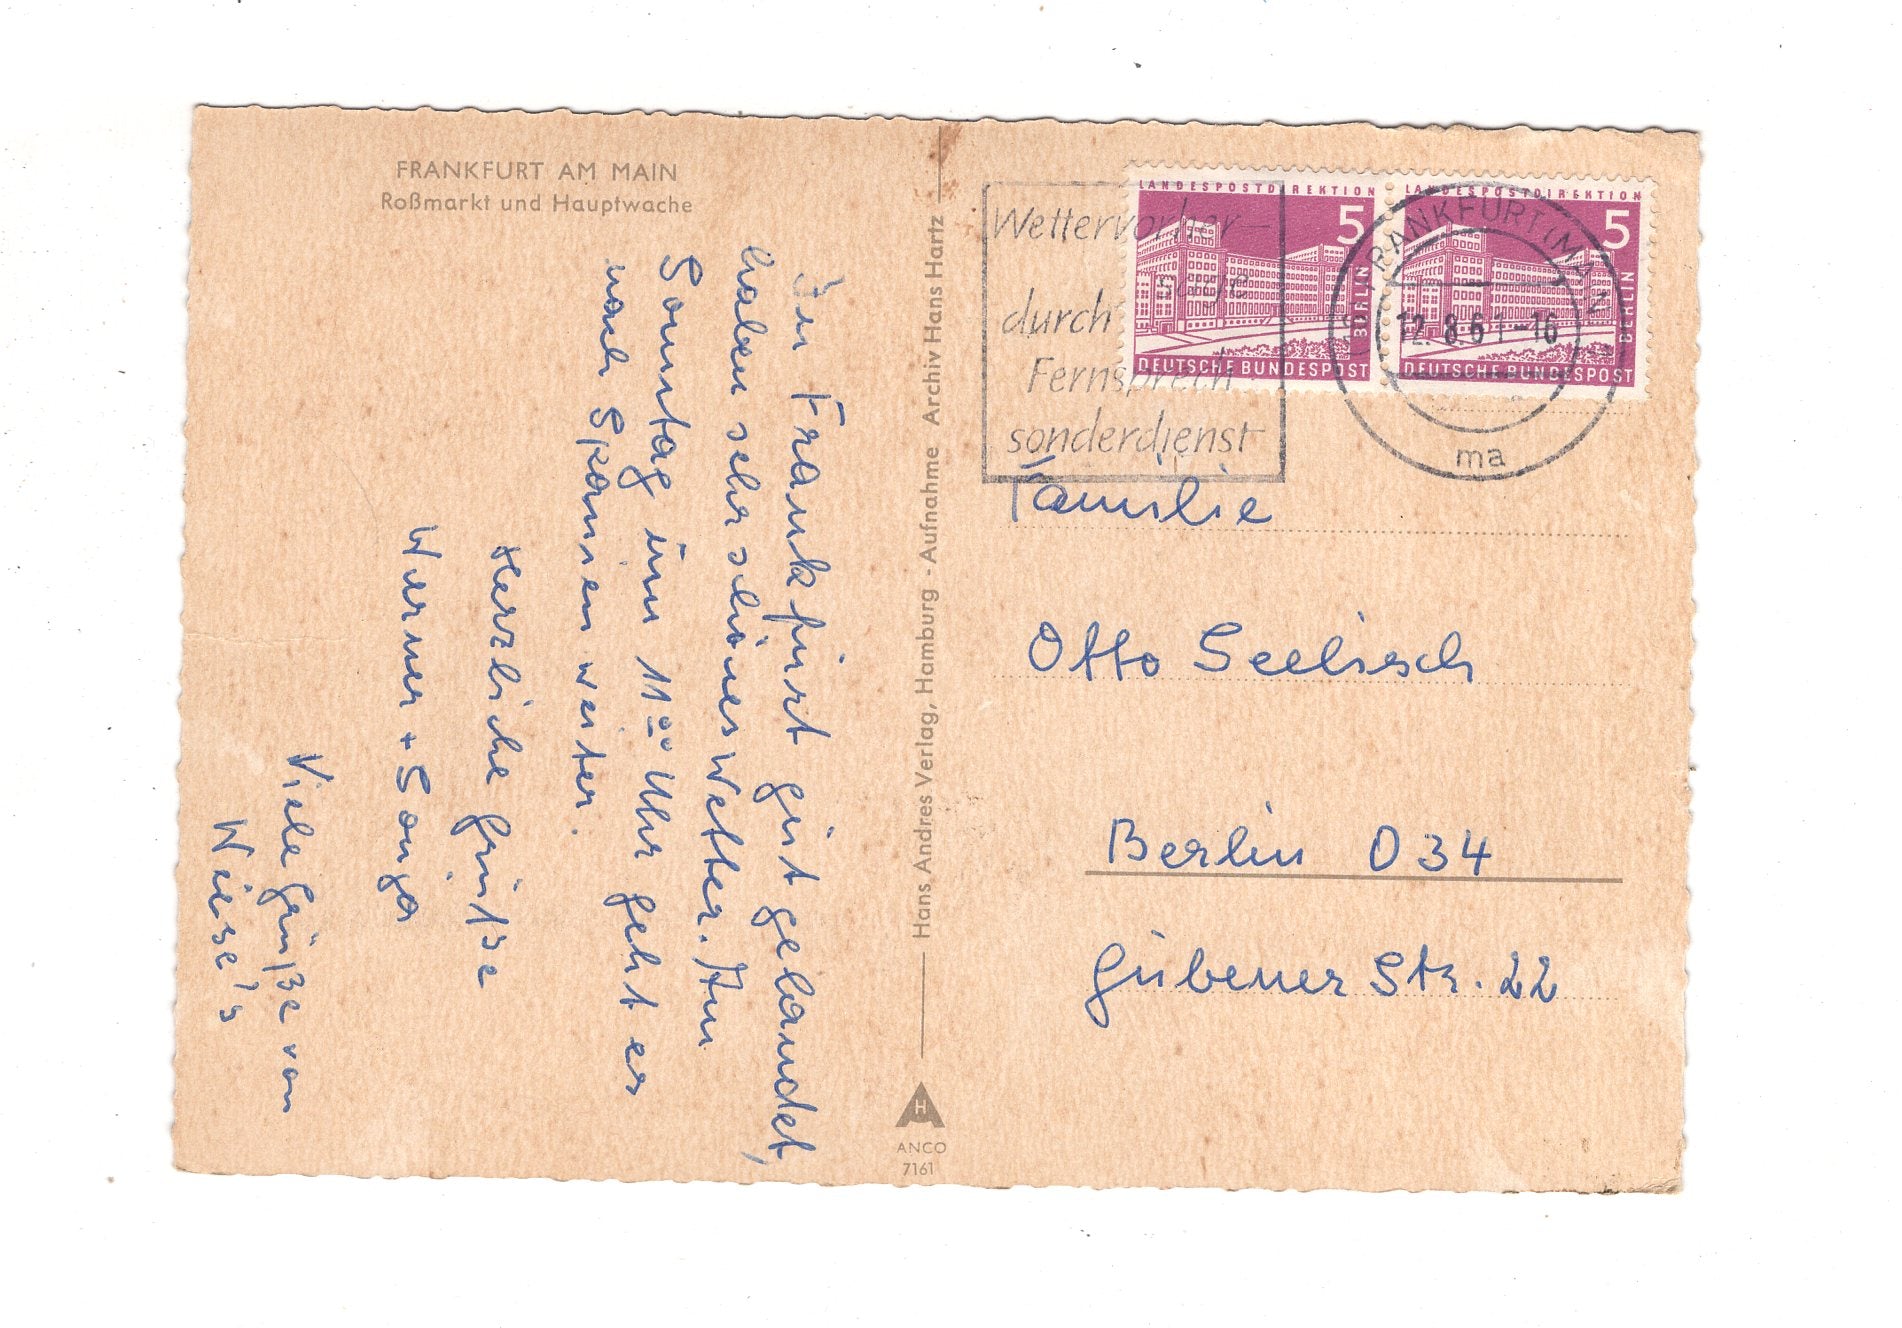 FRANKFURT AM MAIN
Roßmarkt und Hauptwache
In Frankfurt gut gelandet,
haben sehr schönes Wetter. Am
Sonntag um 11⁰⁰ Uhr geht es
nach Spanien weiter.
Herzliche Grüße
Werner + Sonja
Viele Grüße von
Wiese's
Hans Andres Verlag, Hamburg - Aufnahme Archiv Hans Hartz
H
ANCO
7161
Wettervorher-
sage
durch
Fernsprech
sonderdienst
LANDESPOSTDIREKTION
5
BERLIN
DEUTSCHE BUNDESPOST
LANDESPOSTDIREKTION
5
BERLIN
DEUTSCHE BUNDESPOST
FRANKFURT (MAIN)
12.8.61-16
ma
Familie
Otto
Berlin O 34
Gubener Str. 22